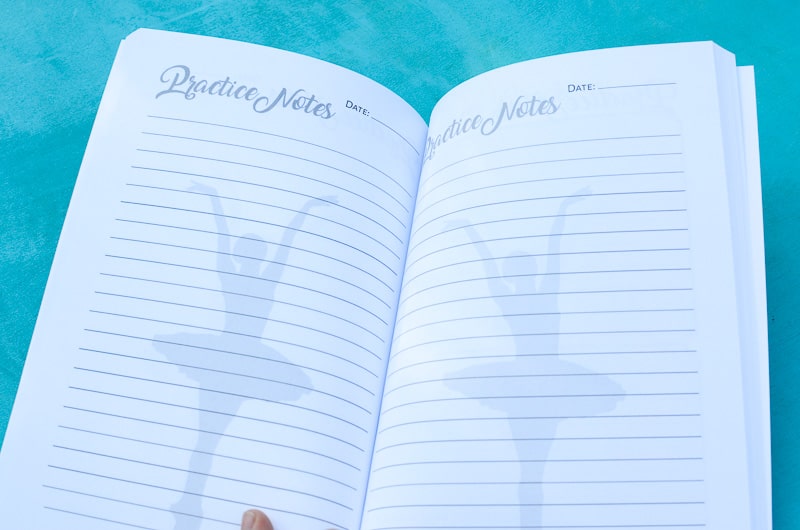 Practice Notes DATE:
Practice Notes DATE: